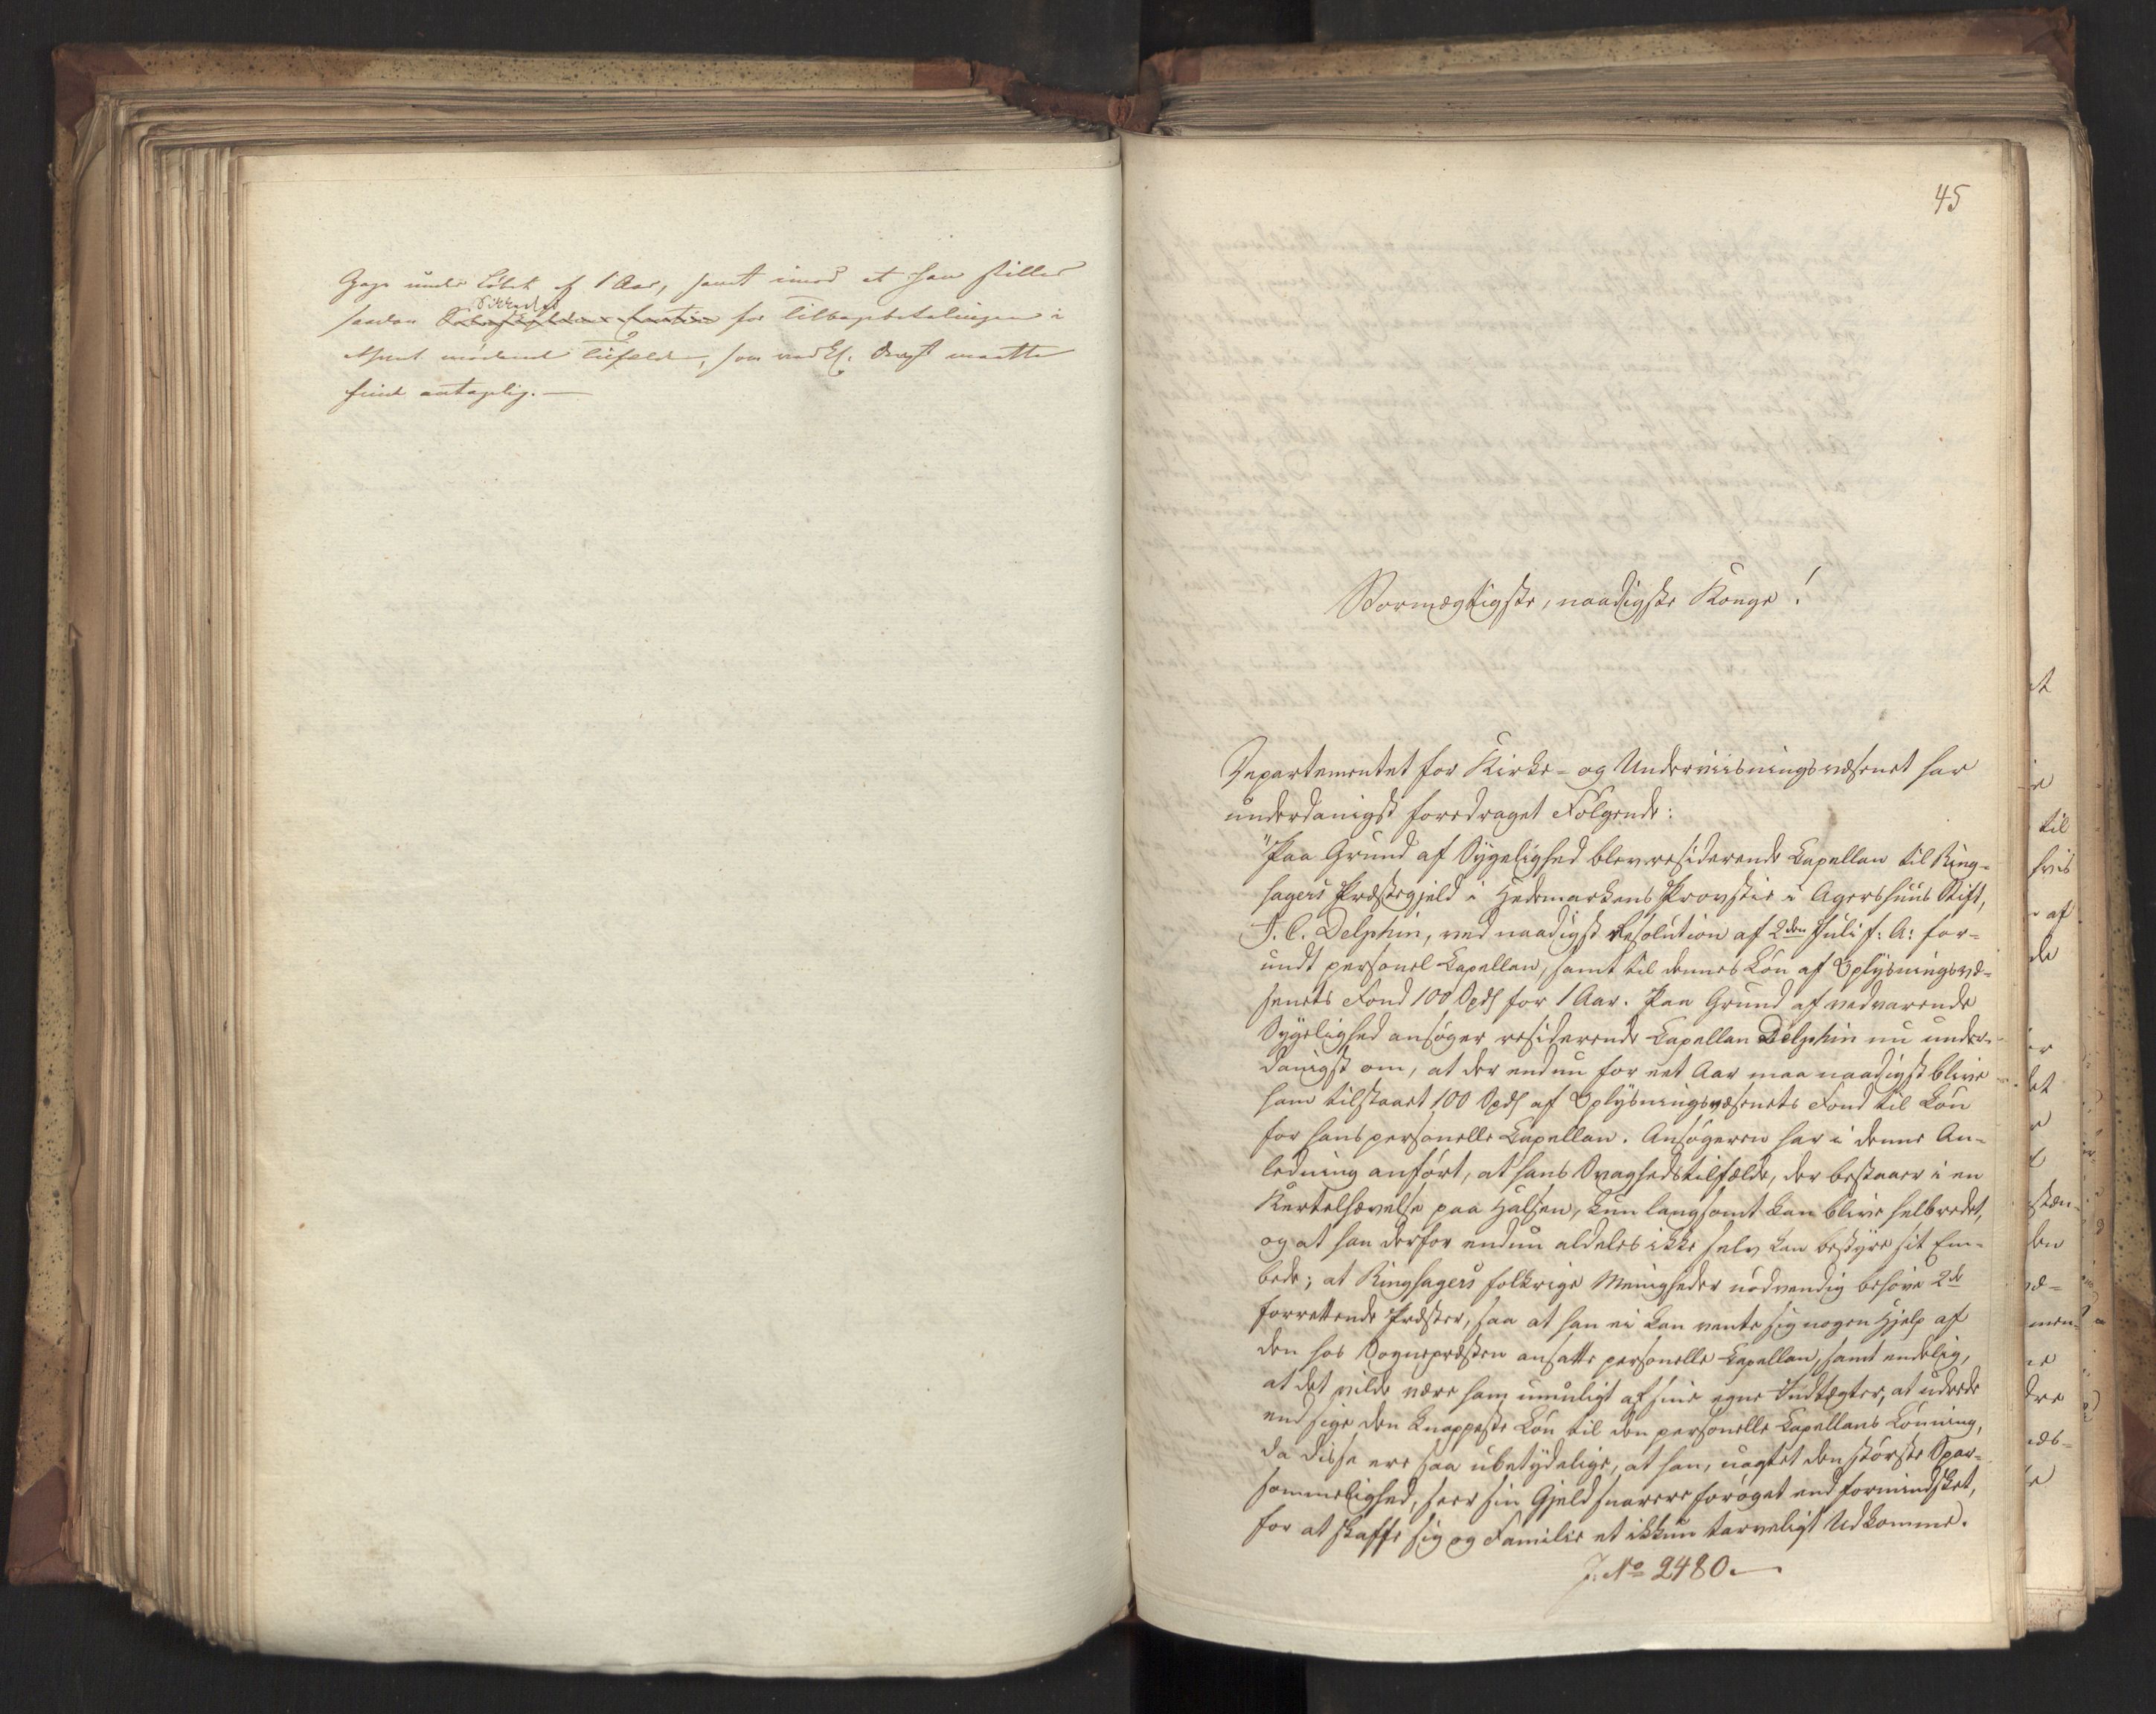 Gage under Löbet af 1 Aar, samt imod at han stiller
saadan Sikkerhed for Tilbagebetalingen i
ethvert mödende Tilfælde, som ved Kf. Dragt maatte
finde antagelig. —
45
Stormægtigste, naadigste Konge!
Departementet for Kirke- og Underviisningsvæsenet har
underdanigst foredraget Fölgende:
"Paa Grund af Sygelighed blev residerende Capellan til Ring-
sagers Præstegjeld i Hedemarkens Provstie i Agershuus Stift,
J. C. Delphin, ved naadigst Resolution af 2den Juli f: A: for-
undt personel Capellan, samt til dennes Lön af Oplysningsvæ-
senets Fond 100 Spd for 1 Aar. Paa Grund af vedvarende
Sygelighed ansöger residerende Capellan Delphin nu under-
danigst om, at der endnu for eet Aar maa naadigst blive
ham tilstaaet 100 Spd af Oplysningsvæsenets Fond til Lön
for hans personelle Capellan. Ansögeren har i denne An-
ledning anfört, at hans Svaghedstilfælde, der bestaaer i en
Kirtelhævelse paa Halsen, kun langsomt kan blive helbredet,
og at han derfor endnu aldeles ikke selv kan bestyre sit Em-
bede; at Ringsagers folkrige Menigheder nödvendig behöve 2de
forrettende Præster, saa at han ei kan vente sig nogen Hjelp af
den hos Sognepræsten ansatte personelle Capellan, samt endelig,
at det vilde være ham umuligt af sine egne Indtægter, at udrede
end sige den knappeste Lön til den personelle Capellans Lönning,
da disse ere saa ubetydelige, at han, uagtet den störste Spar-
sommelighed, seer sin Gjeld snarere foröget end formindsket,
for at skaffe sig og Familie et ikkun tarveligt Udkomme.
J. No 2480. —